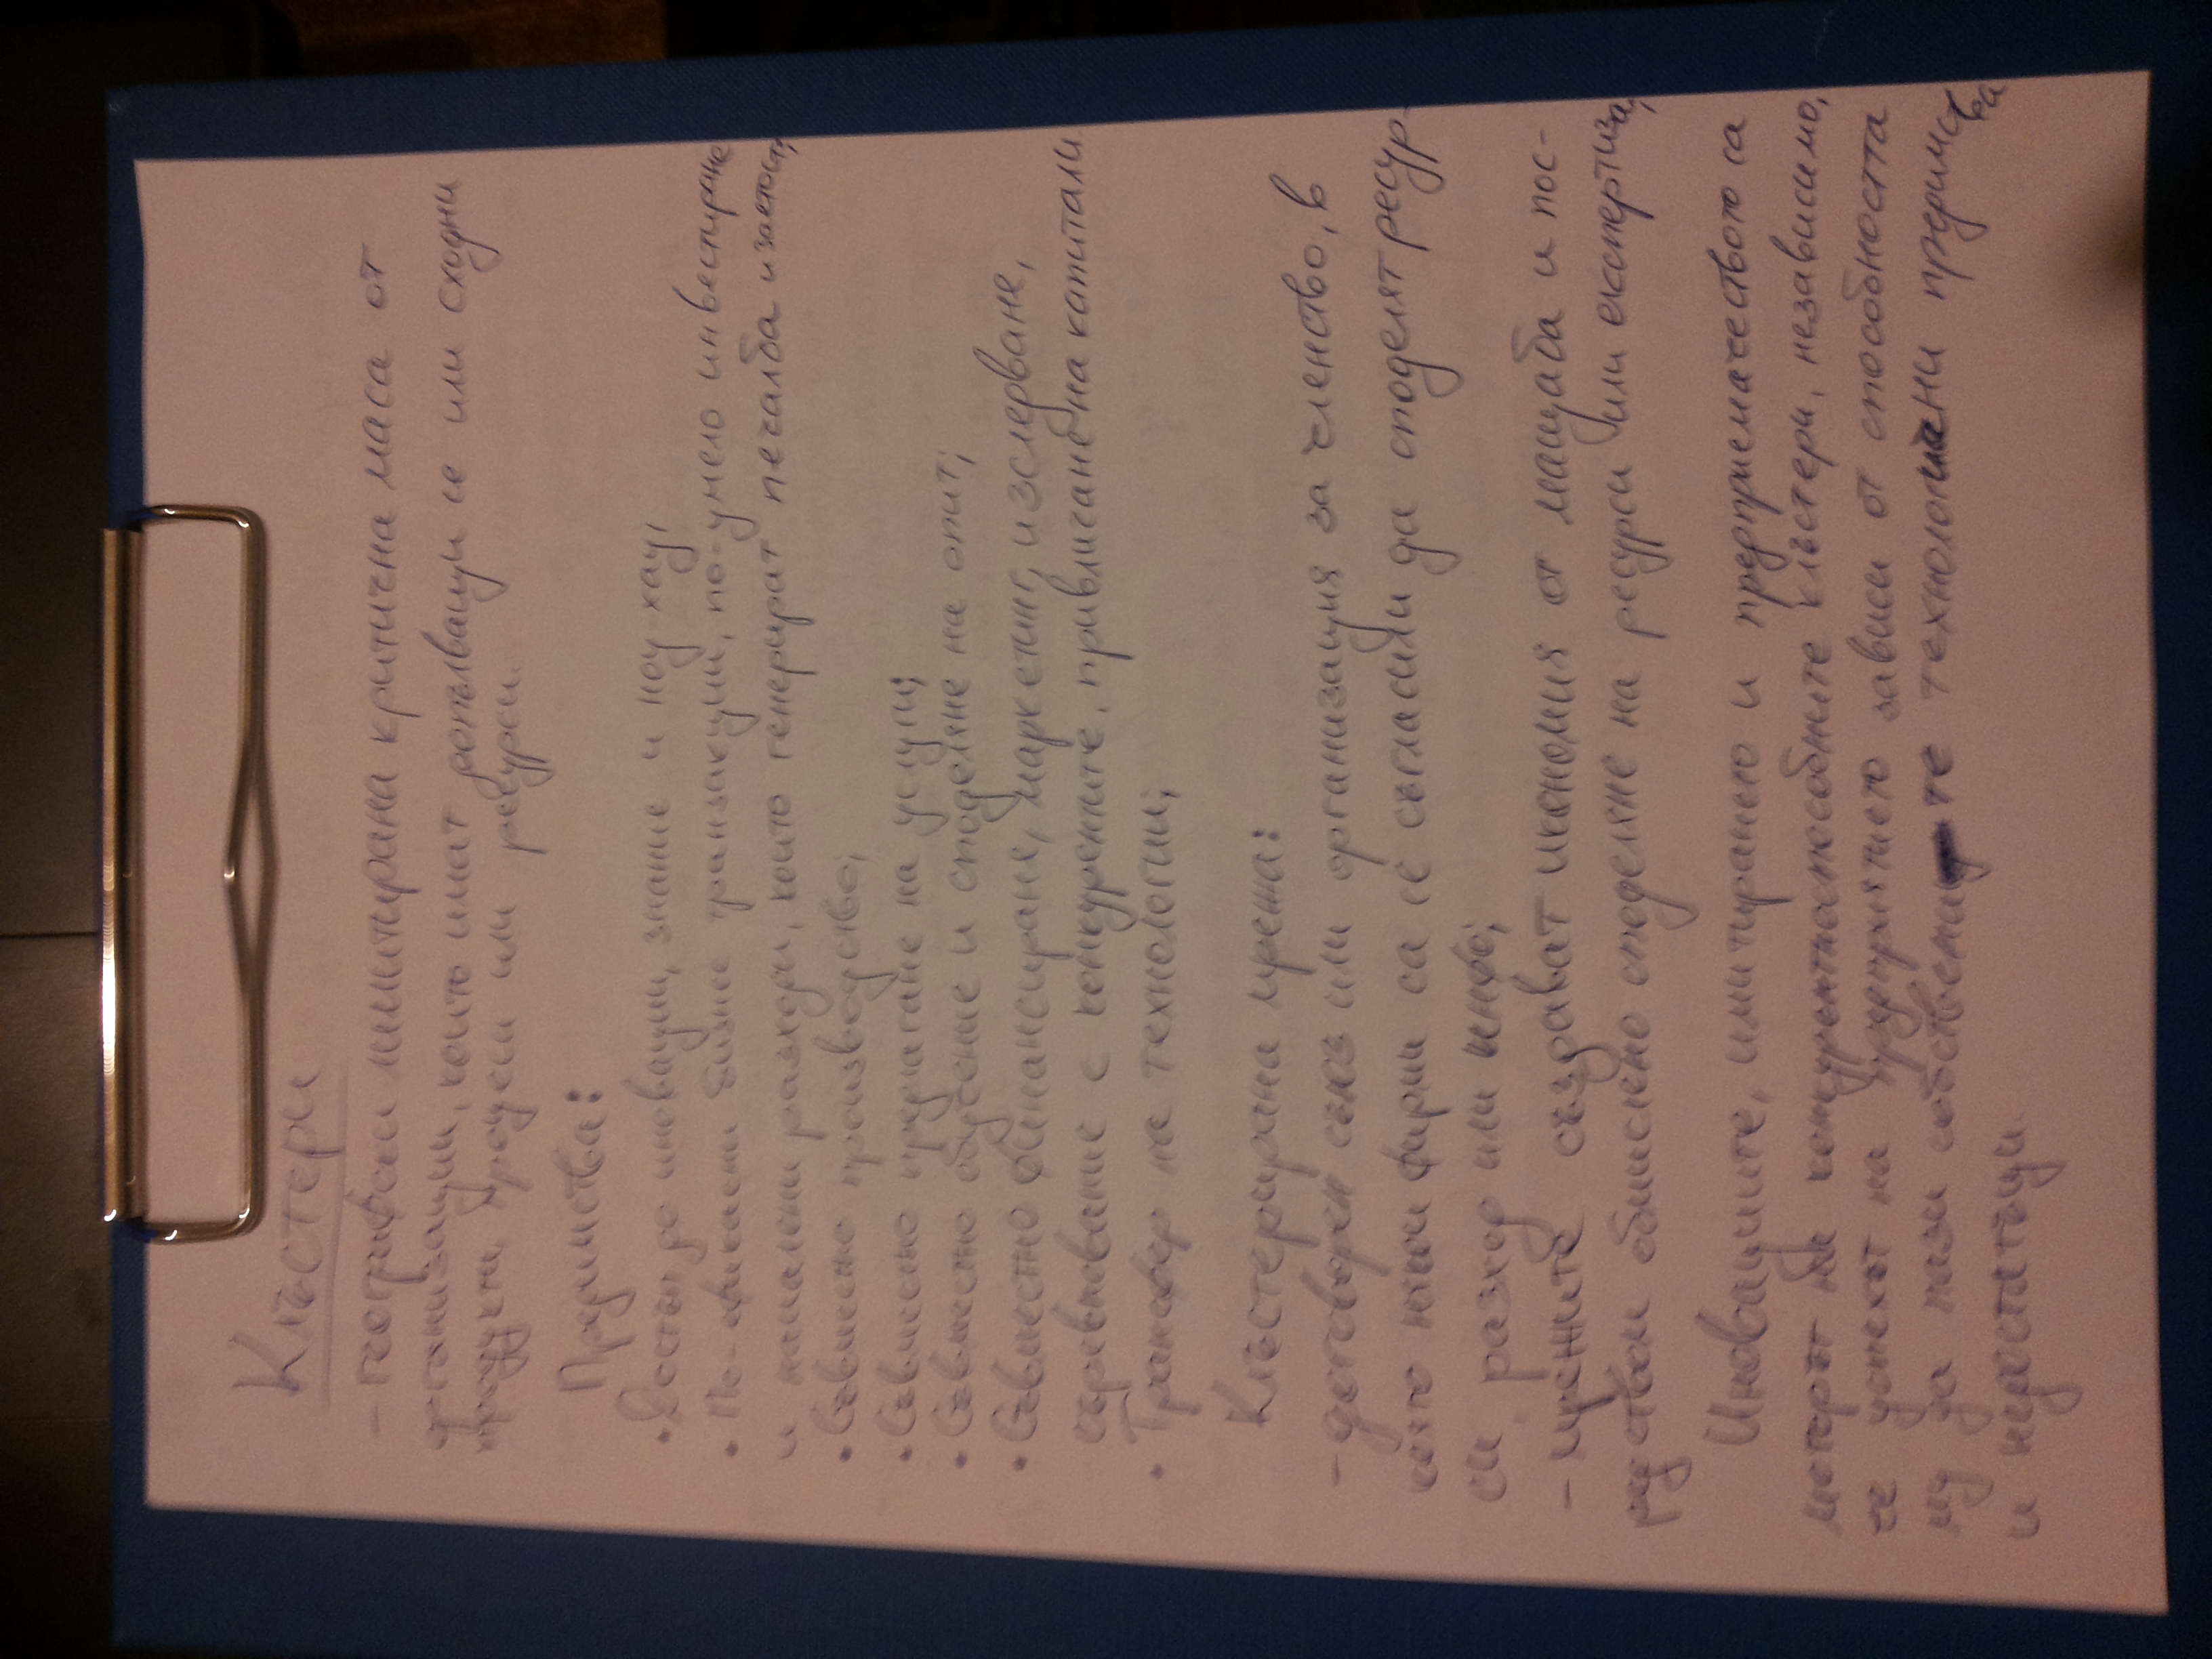 Клъстери
- географски лимитирана критична маса от
организации, които имат допълващи се или сходни
продукти, процеси или ресурси.
Предимства:
• Достъп до иновации, знание и ноу-хау;
• По-ефикасни бизнес транзакции, по-умело инвестиране
и намалени разходи, които генерират печалба и заетост;
• Съвместно производство;
• Съвместно предлагане на услуги;
• Съвместно обучение и споделяне на опит;
• Съвместно финансиране, маркетинг, изследване,
съревнование с конкурентите, привличане на капитали
• Трансфер на технологии;
Клъстерирана мрежа:
- договорен съюз или организация за членство, в
която някои фирми са се съгласили да споделят ресур-
си, разход или инфо;
- мрежите създават икономия от мащаба и пос-
редством обмислено споделяне на ресурси или експертиза;
Иновациите, имитирането и предприемачеството са
моторът на конкурентноспособните клъстери, независимо,
че успехът на предприятието зависи от способността
му да пази собствените технологични предимства
и недостатъци